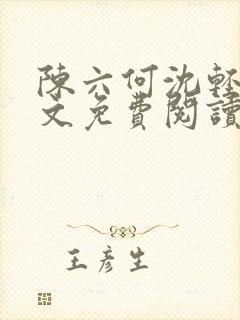 陳六何沈輕
文免費閱讀
王彥生